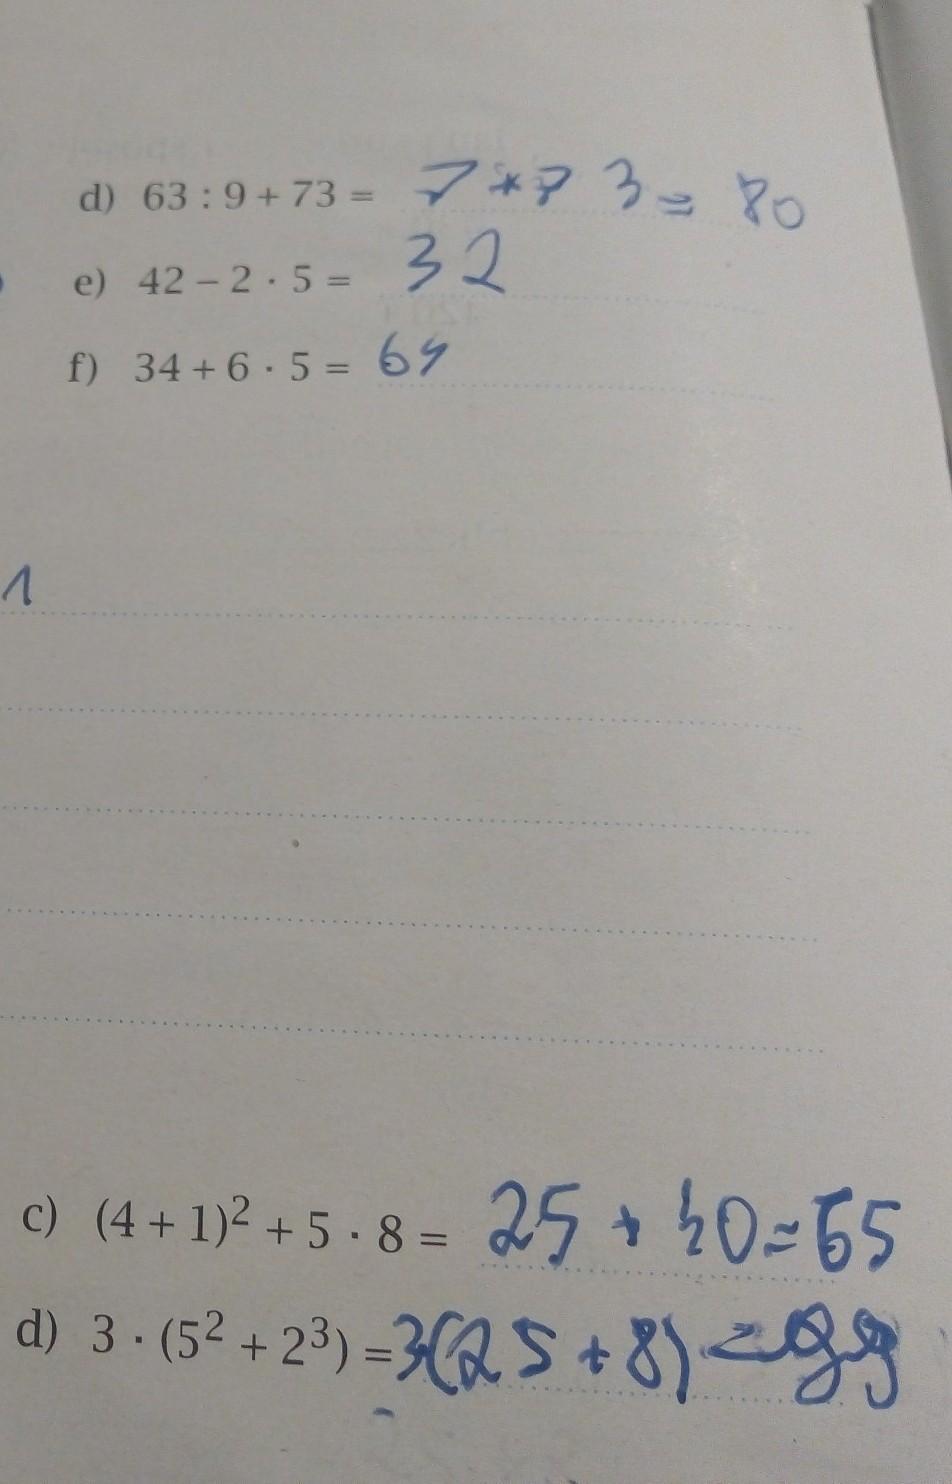 d) 63 : 9 + 73 = 7 + 7 3 = 80
e) 42 – 2 · 5 = 32
f) 34 + 6 · 5 = 64
1
c) (4 + 1)² + 5 · 8 = 25 + 40 = 65
d) 3 · (5² + 2³) = 3(25 + 8) = 99